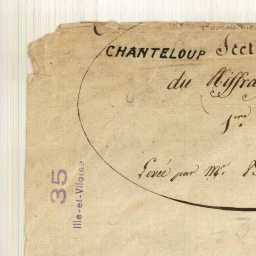 CHANTELOUP Sect
du Riffra
1ere
Levée par Mr.
35
Ille-et-Vilaine